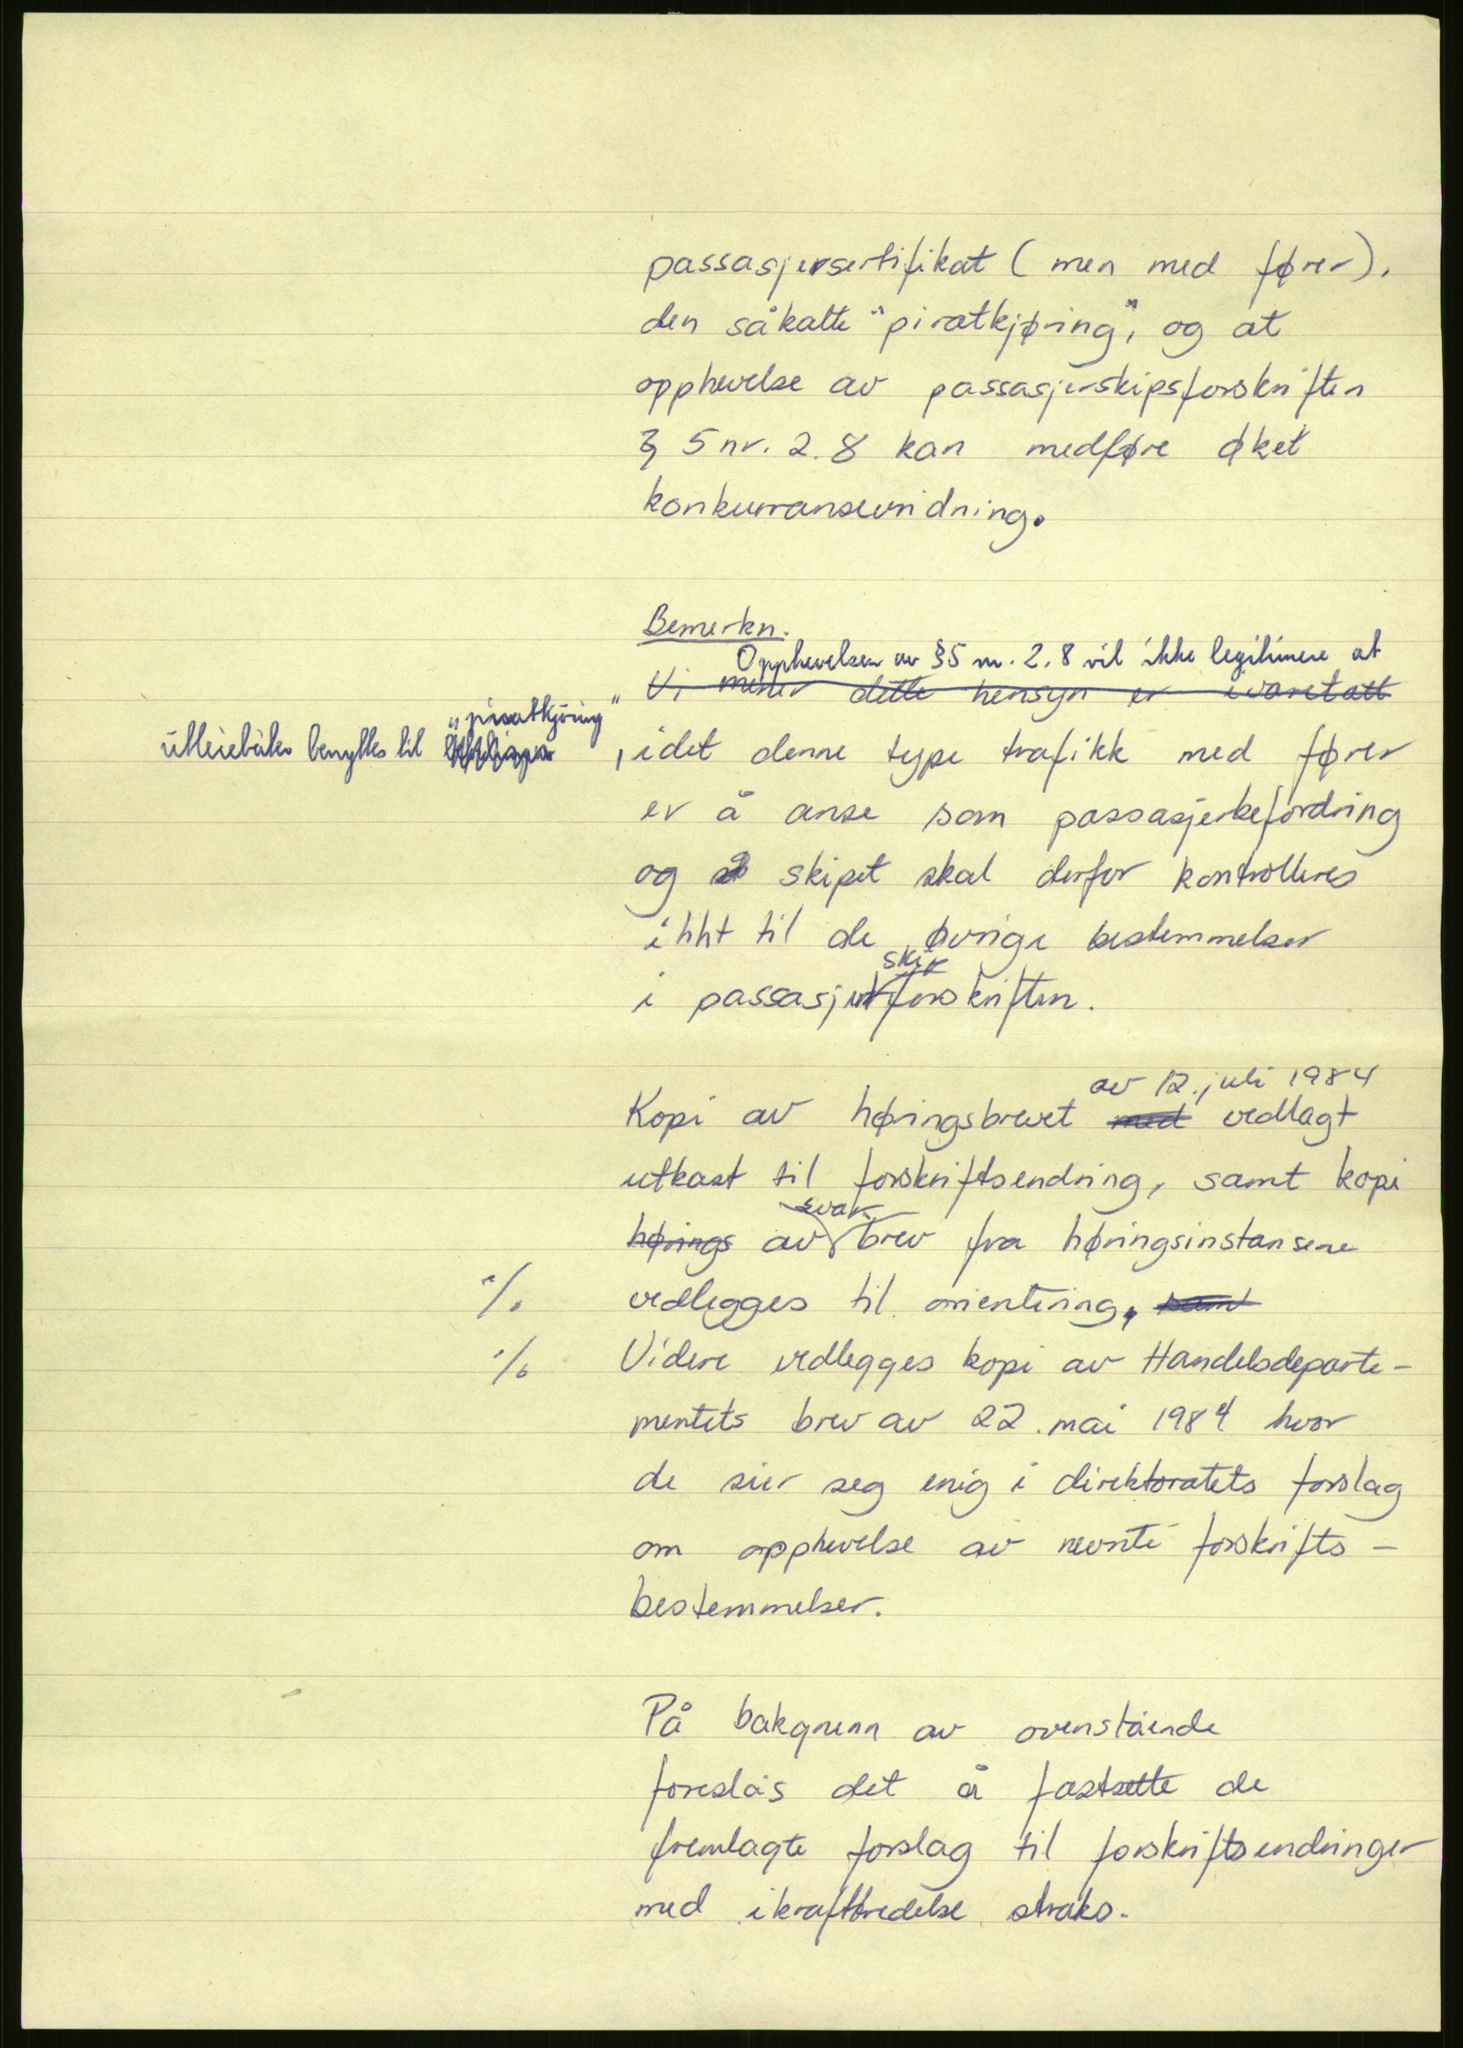 passasjersertifikat (men med fører),
den såkalte "piratkjøring", og at
opphevelse av passasjerskipsforskriften
§ 5 nr. 2.8 kan medføre øket
konkurransevridning.
Bemerkn.
Opphevelsen av §5 nr. 2.8 vil ikke legitimere at
Vi mener dette hensyn er ivaretatt
utleiebåter benyttes til "piratkjøring"
, idet denne type trafikk med fører
er å anse som passasjerbefordring
og skipet skal derfor kontrolleres
i hht til de øvrige bestemmelser
skip
i passasjerforskriften.
av 12. juli 1984
Kopi av høringsbrevet med vedlagt
utkast til forskriftsendring, samt kopi
svar
hørings av brev fra høringsinstansene
./. vedlegges til orientering. samt
./. Videre vedlegges kopi av Handelsdeparte-
mentets brev av 22. mai 1984 hvor
de sier seg enig i direktoratets forslag
om opphevelse av nevnte forskrifts-
bestemmelser.
På bakgrunn av ovenstående
foreslås det å fastsette de
fremlagte forslag til forskriftsendringer
med ikrafttredelse straks.